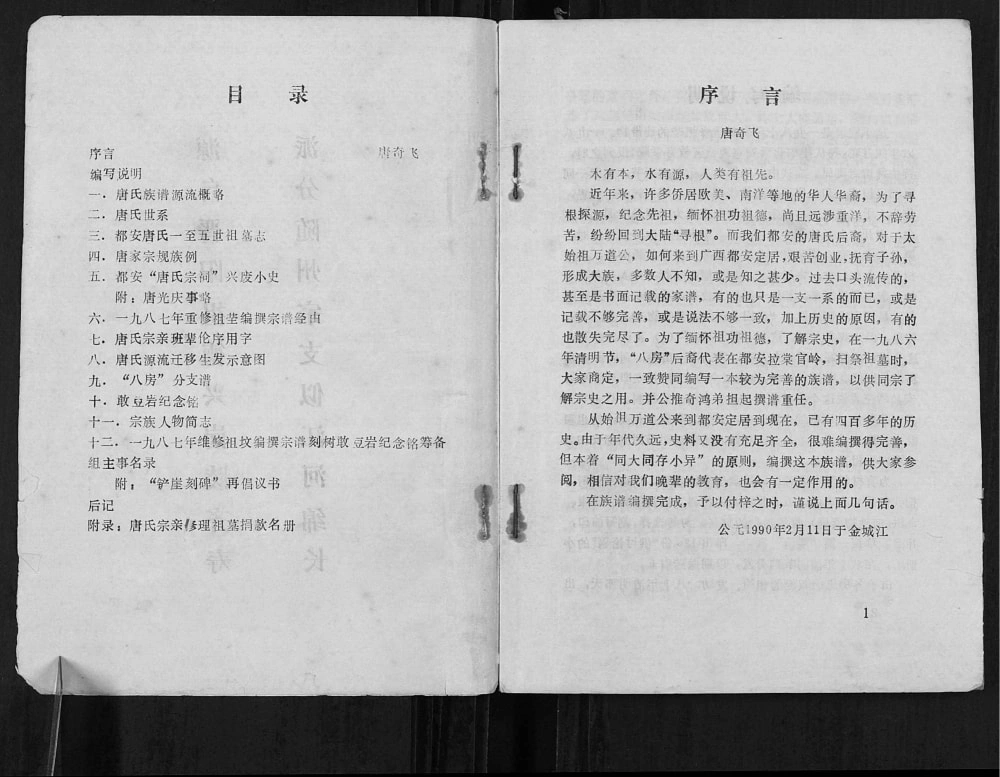 目 录
序言 唐奇飞
编写说明
一．唐氏族谱源流概略
二．唐氏世系
三．都安唐氏一至五世祖墓志
四．唐家宗规族例
五．都安“唐氏宗祠”兴废小史
附：唐光庆事略
六．一九八七年重修祖茔编撰宗谱经由
七．唐氏宗亲班辈伦序用字
八．唐氏源流迁移生发示意图
九．“八房”分支谱
十．敢豆岩纪念铭
十一．宗族人物简志
十二．一九八七年维修祖坟编撰宗谱刻树敢豆岩纪念铭筹备
组主事名录
附：“铲崖刻碑”再倡议书
后记
附录：唐氏宗亲修理祖墓捐款名册
序 言
唐奇飞
木有本，水有源，人类有祖先。
近年来，许多侨居欧美、南洋等地的华人华裔，为了寻
根探源，纪念先祖，缅怀祖功祖德，尚且远涉重洋，不辞劳
苦，纷纷回到大陆“寻根”。而我们都安的唐氏后裔，对于太
始祖万道公，如何来到广西都安定居，艰苦创业，抚育子孙，
形成大族，多数人不知，或是知之甚少。过去口头流传的，
甚至是书面记载的家谱，有的也只是一支一系的而已，或是
记载不够完善，或是说法不够一致，加上历史的原因，有的
也散失完尽了。为了缅怀祖功祖德，了解宗史，在一九八六
年清明节，“八房”后裔代表在都安拉棠官岭，扫祭祖墓时，
大家商定，一致赞同编写一本较为完善的族谱，以供同宗了
解宗史之用。并公推奇鸿弟担起撰谱重任。
从始祖万道公来到都安定居到现在，已有四百多年的历
史。由于年代久远，史料又没有充足齐全，很难编撰得完善，
但本着“同大同存小异”的原则，编撰这本族谱，供大家参
阅，相信对我们晚辈的教育，也会有一定作用的。
在族谱编撰完成，予以付梓之时，谨说上面几句话。
公元1990年2月11日于金城江
1